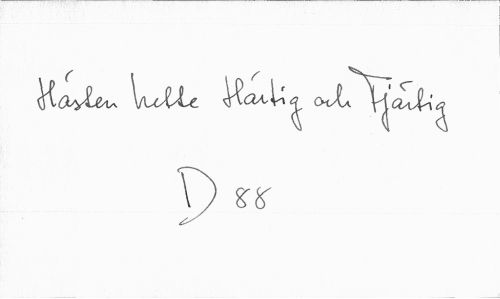 Hästen hette Härtig och Fjärtig
D 88